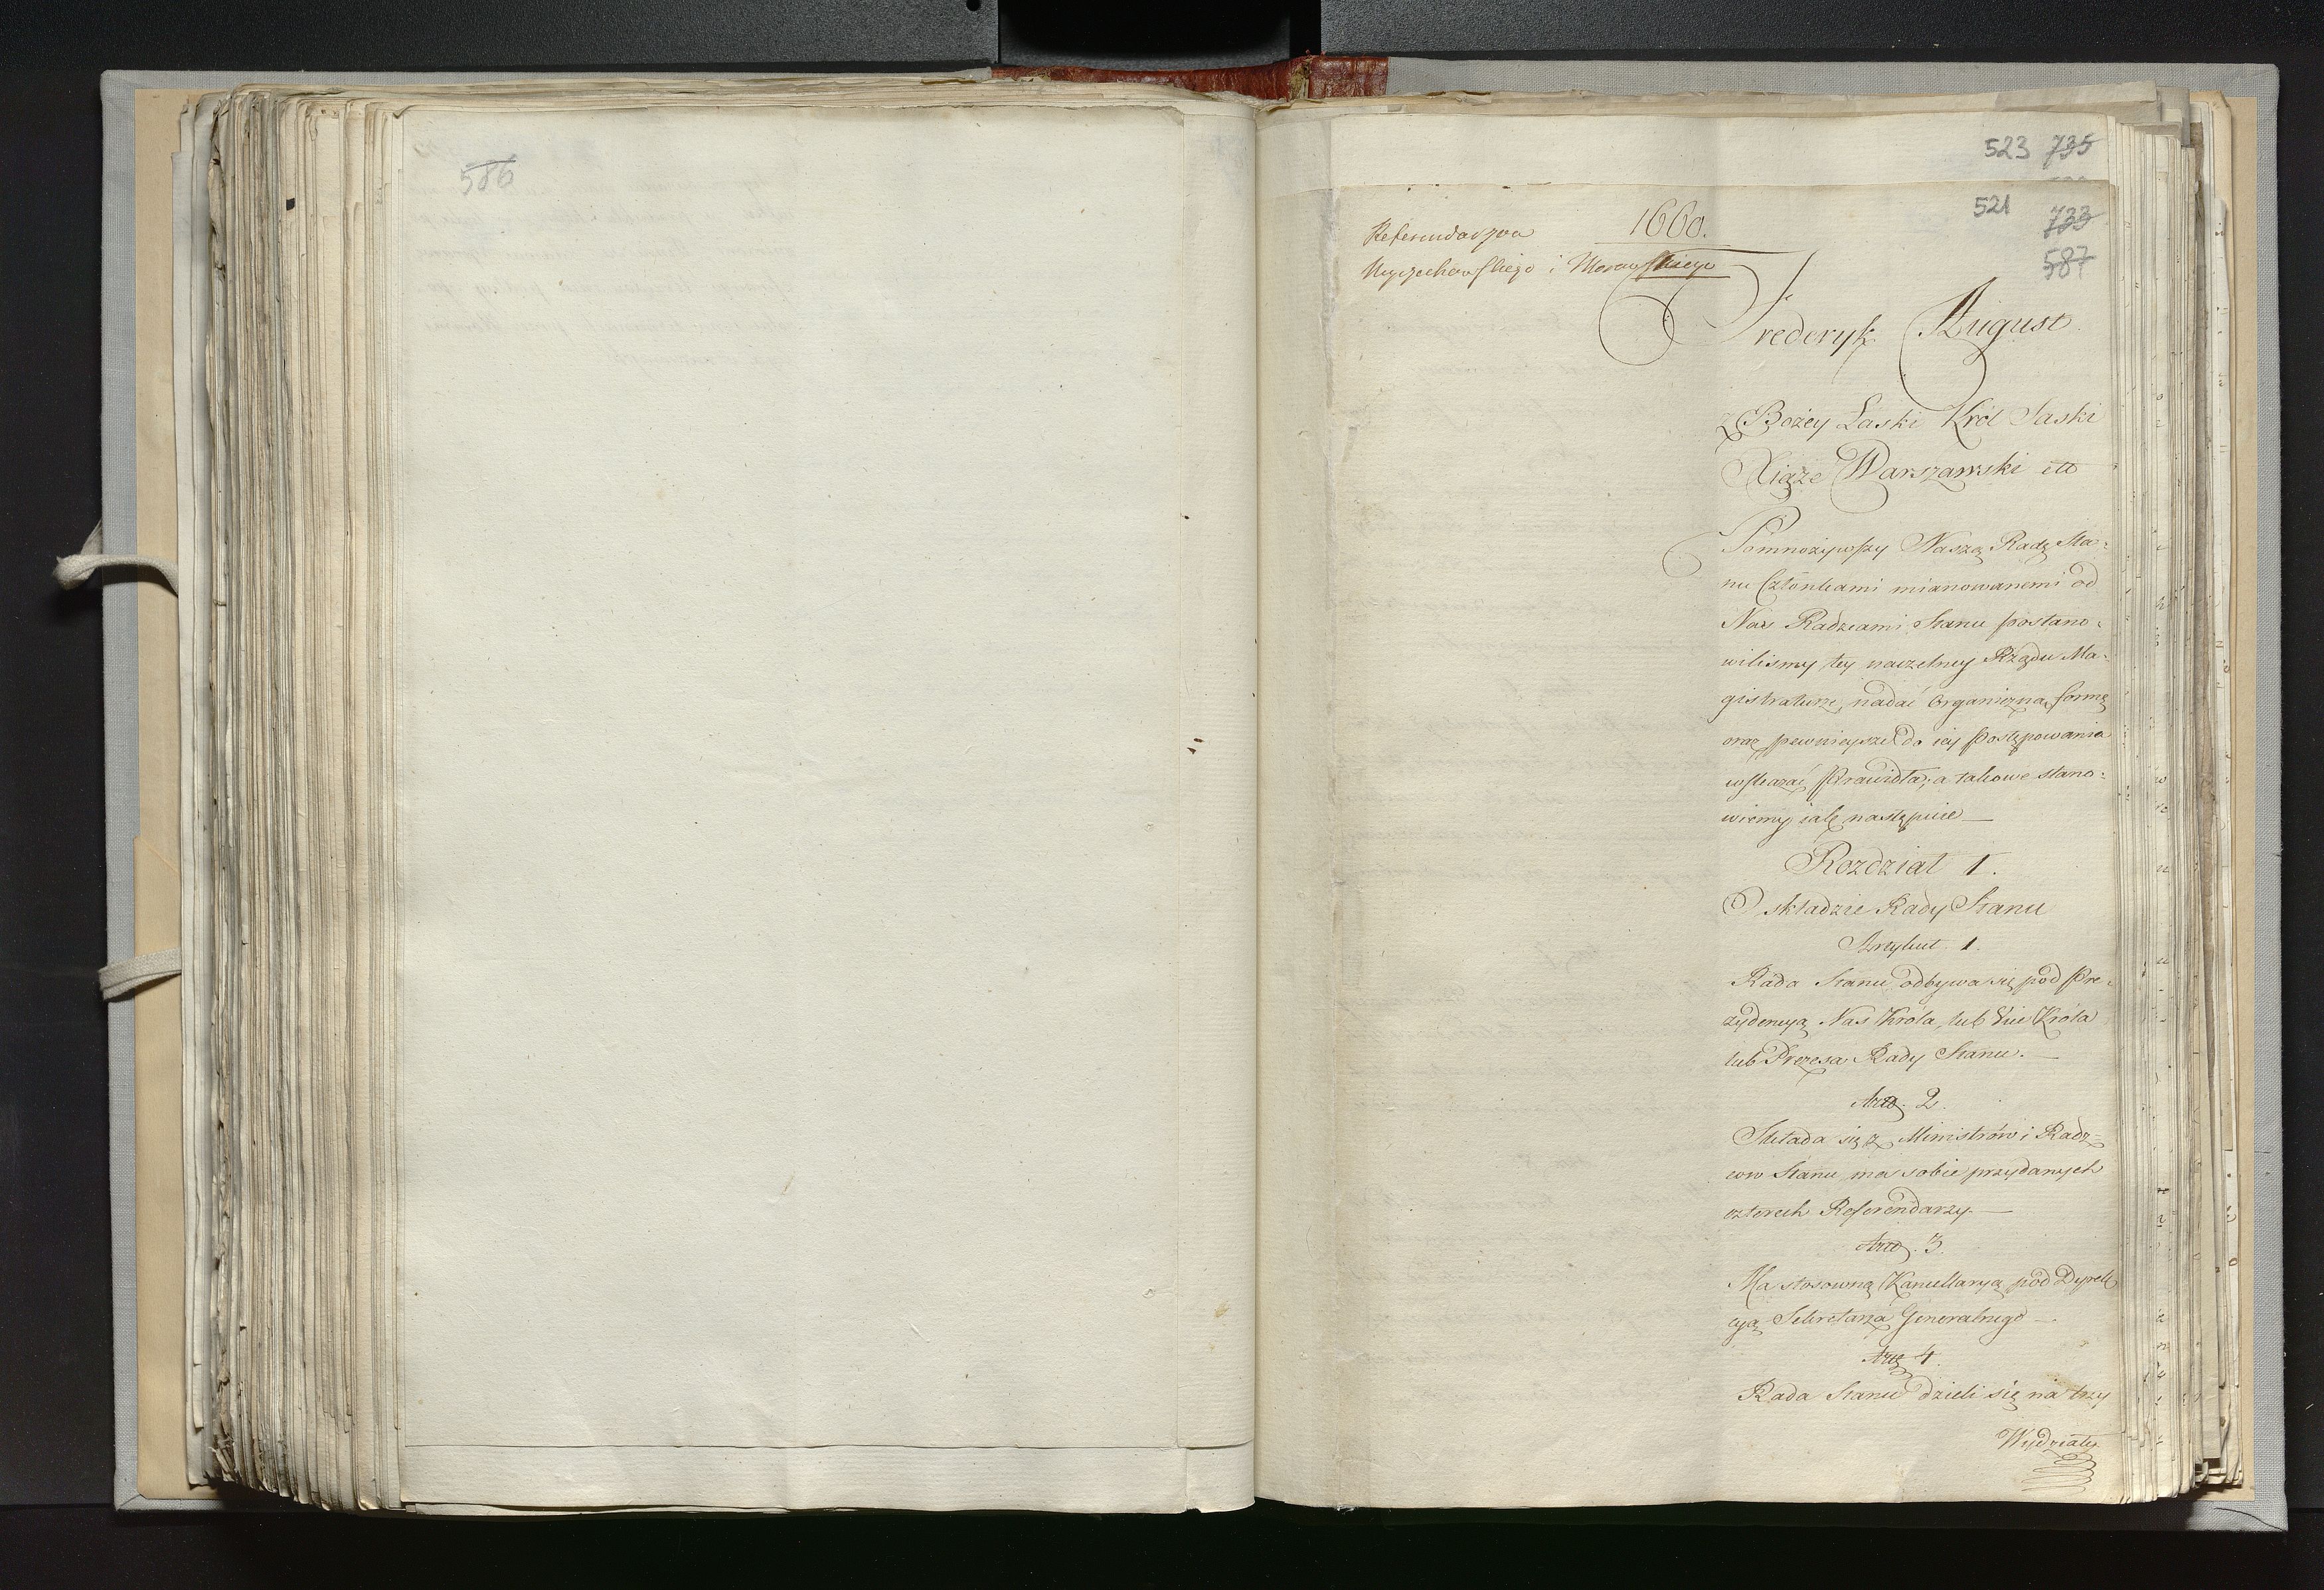 586
523 735
521
733
587
1660.
Referendarza
Wyczechowskiego i Morawskiego
Frederyk August
z Bożey Łaski Król Saski
Xiąże Warszawski etc
Pomnożywszy Naszą Radę Sta-
nu Członkami mianowanemi od
Nas Radzcami Stanu postano-
wiliśmy tey naczelney Rządu Ma-
gistraturze, nadać organiczną formę
oraz pewnieysze do iey postępowania
wskazać Prawidła, a takowe stano-
wiemy iak następuie —
Rozdział 1.
O składzie Rady Stanu
Artykuł 1.
Rada Stanu odbywa się pod Pre-
zydencyą Nas Króla, lub Vice Króla
lub Prezesa Rady Stanu. —
Art. 2.
Składa się z Ministrów i Radz-
ców Stanu, ma sobie przydanych
czterech Referendarzy. —
Art. 3.
Ma stosowną Kancellaryą pod Dyrek
cyą Sekretarza Generalnego —.
Art. 4.
Rada Stanu dzieli się na trzy
Wydziały